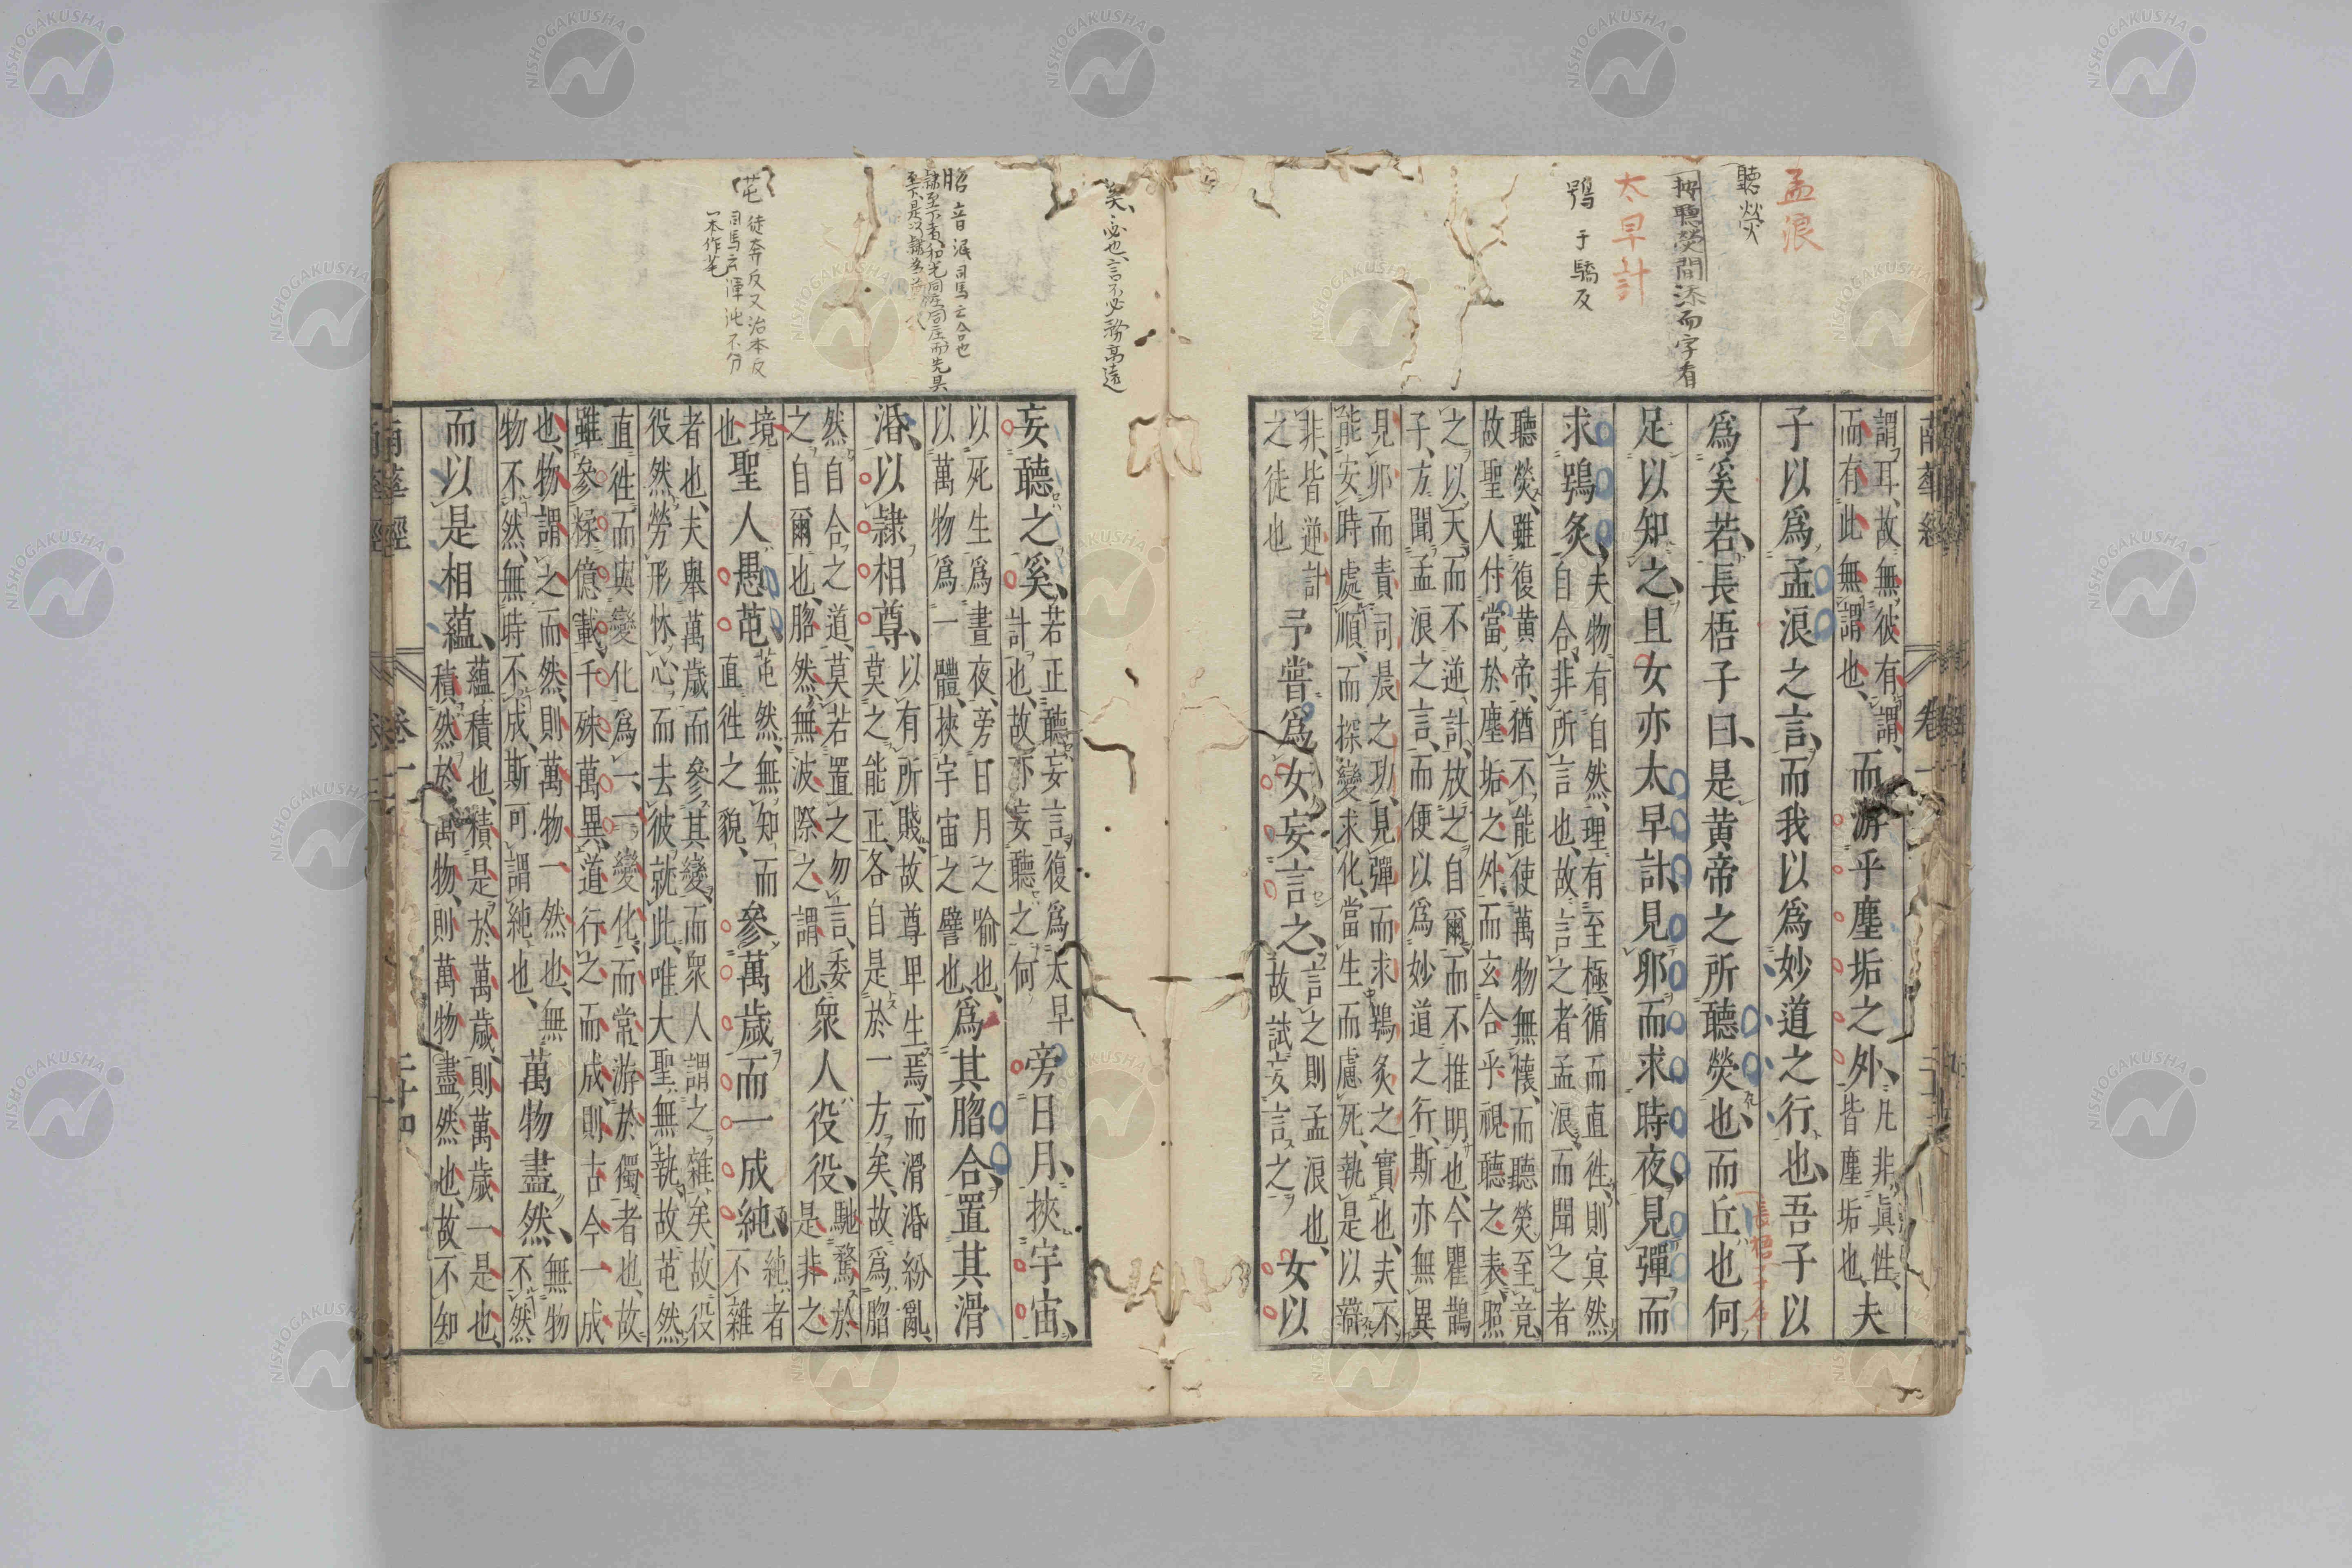 孟浪
聽熒
按聽熒間添而字看
太早計
鴞 于驕反
謂耳、故無彼有謂、
而有此無謂也、
而游乎塵垢之外、
凡非眞性、
皆塵垢也、
夫
子以爲孟浪之言、而我以爲妙道之行也、吾子以
爲奚若、長梧子曰、是黃帝之所聽熒也、而丘也何
長梧子名
足以知之、且女亦太早計、見卵而求時夜、見彈而
求鴞炙、
夫物有自然、理有至極、循而直徃、則寘然
自合、非所言也、故言之者孟浪、而聞之者
聽熒、雖復黃帝、猶不能使萬物無懷、而聽熒至竟、
故聖人付當於塵垢之外、而玄合乎視聽之表、照
之以天、而不逆計、放之自爾、而不推明也、今瞿鵲
子、方聞孟浪之言、而便以爲妙道之行、斯亦無異
見卵而責司晨之功、見彈而求鴞炙之實也、夫不
能安時處順、而探變求化、當生而慮死、執是以辯
非、皆逆計
之徒也
予嘗爲女妄言之、
言之則孟浪也、
故試妄言之
女以
矣、必也、言不必務高遠
妄聽之奚、
若正聽妄言、復爲太早
計也、故亦妄聽之何
旁日月、挾宇宙、
以死生爲晝夜、旁日月之喻也、
以萬物爲一體、挾宇宙之譬也、
爲其脗合、置其滑
脗 音泯司馬云合也
涽、以隸相尊、
以有所賤、故尊卑生焉、而滑涽紛亂、
莫之能正、各自是於一方矣、故爲脗
然自合之道、莫若置之勿言、委
之自爾也、脗然、無波際之謂也、
衆人役役、
馳騖於
是非之
境
也
聖人愚芚、
芚然、無知、而
直徃之貌、
參萬歲而一成純、
純者
不雜
芚 徒奔反又治本反
司馬云渾沌不分
一本作芚
者也、夫舉萬歲而參其變、而衆人謂之雜矣、故役
役然勞形怵心、而去彼就此、唯大聖無執、故芚然
直徃、而與變化爲一、一變化、而常游於獨者也、故
雖參糅億載、千殊萬異、道行之而成、則古今一成
也、物謂之而然、則萬物一然也、無
物不然、無時不成、斯可謂純也、
萬物盡然、
無物
不然
而以是相蘊、
蘊積也、積是於萬歲、則萬歲一是也、
積然於萬物、則萬物盡然也、故不知